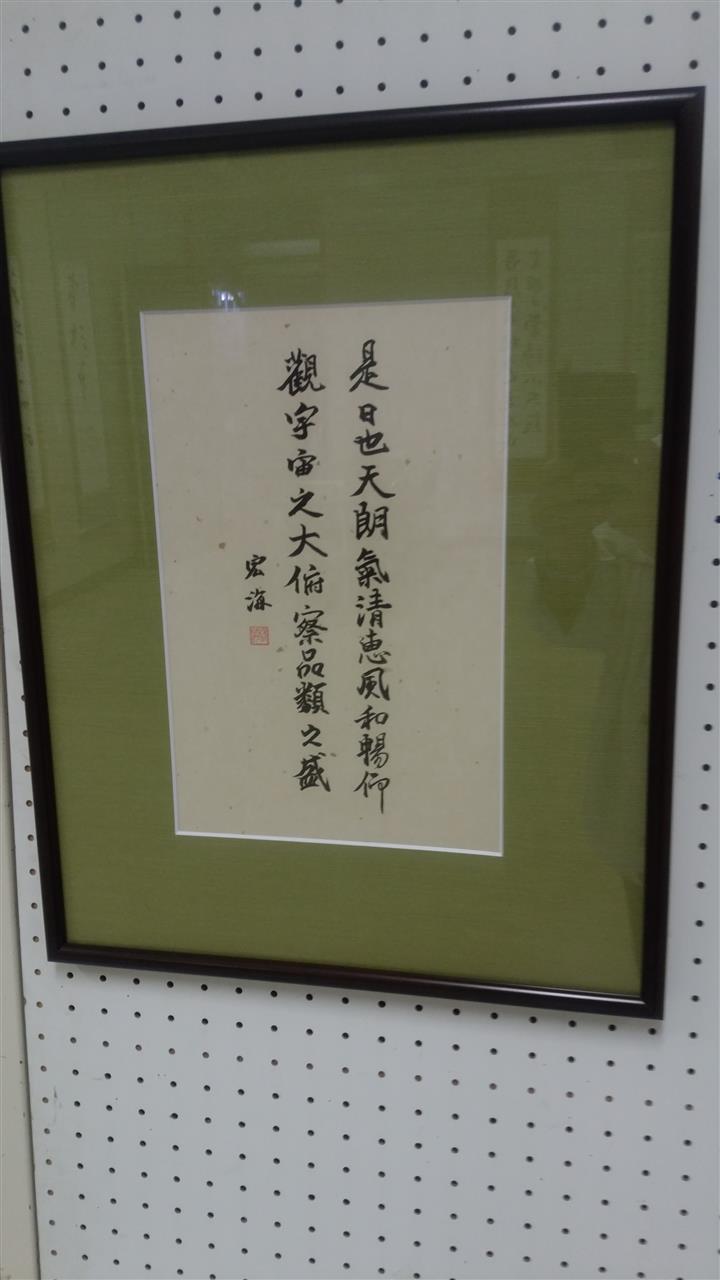 是日也天朗氣清恵風和暢仰
觀宇宙之大俯察品類之盛
宏海